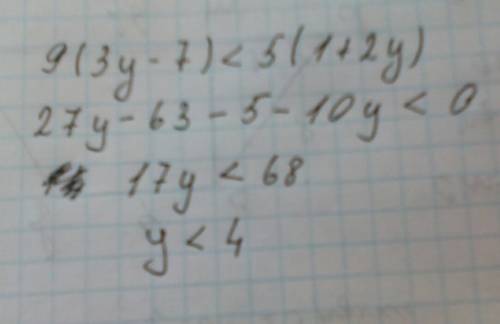 9(3y-7)<5(1+2y)
27y-63-5-10y<0
17y<68
y<4